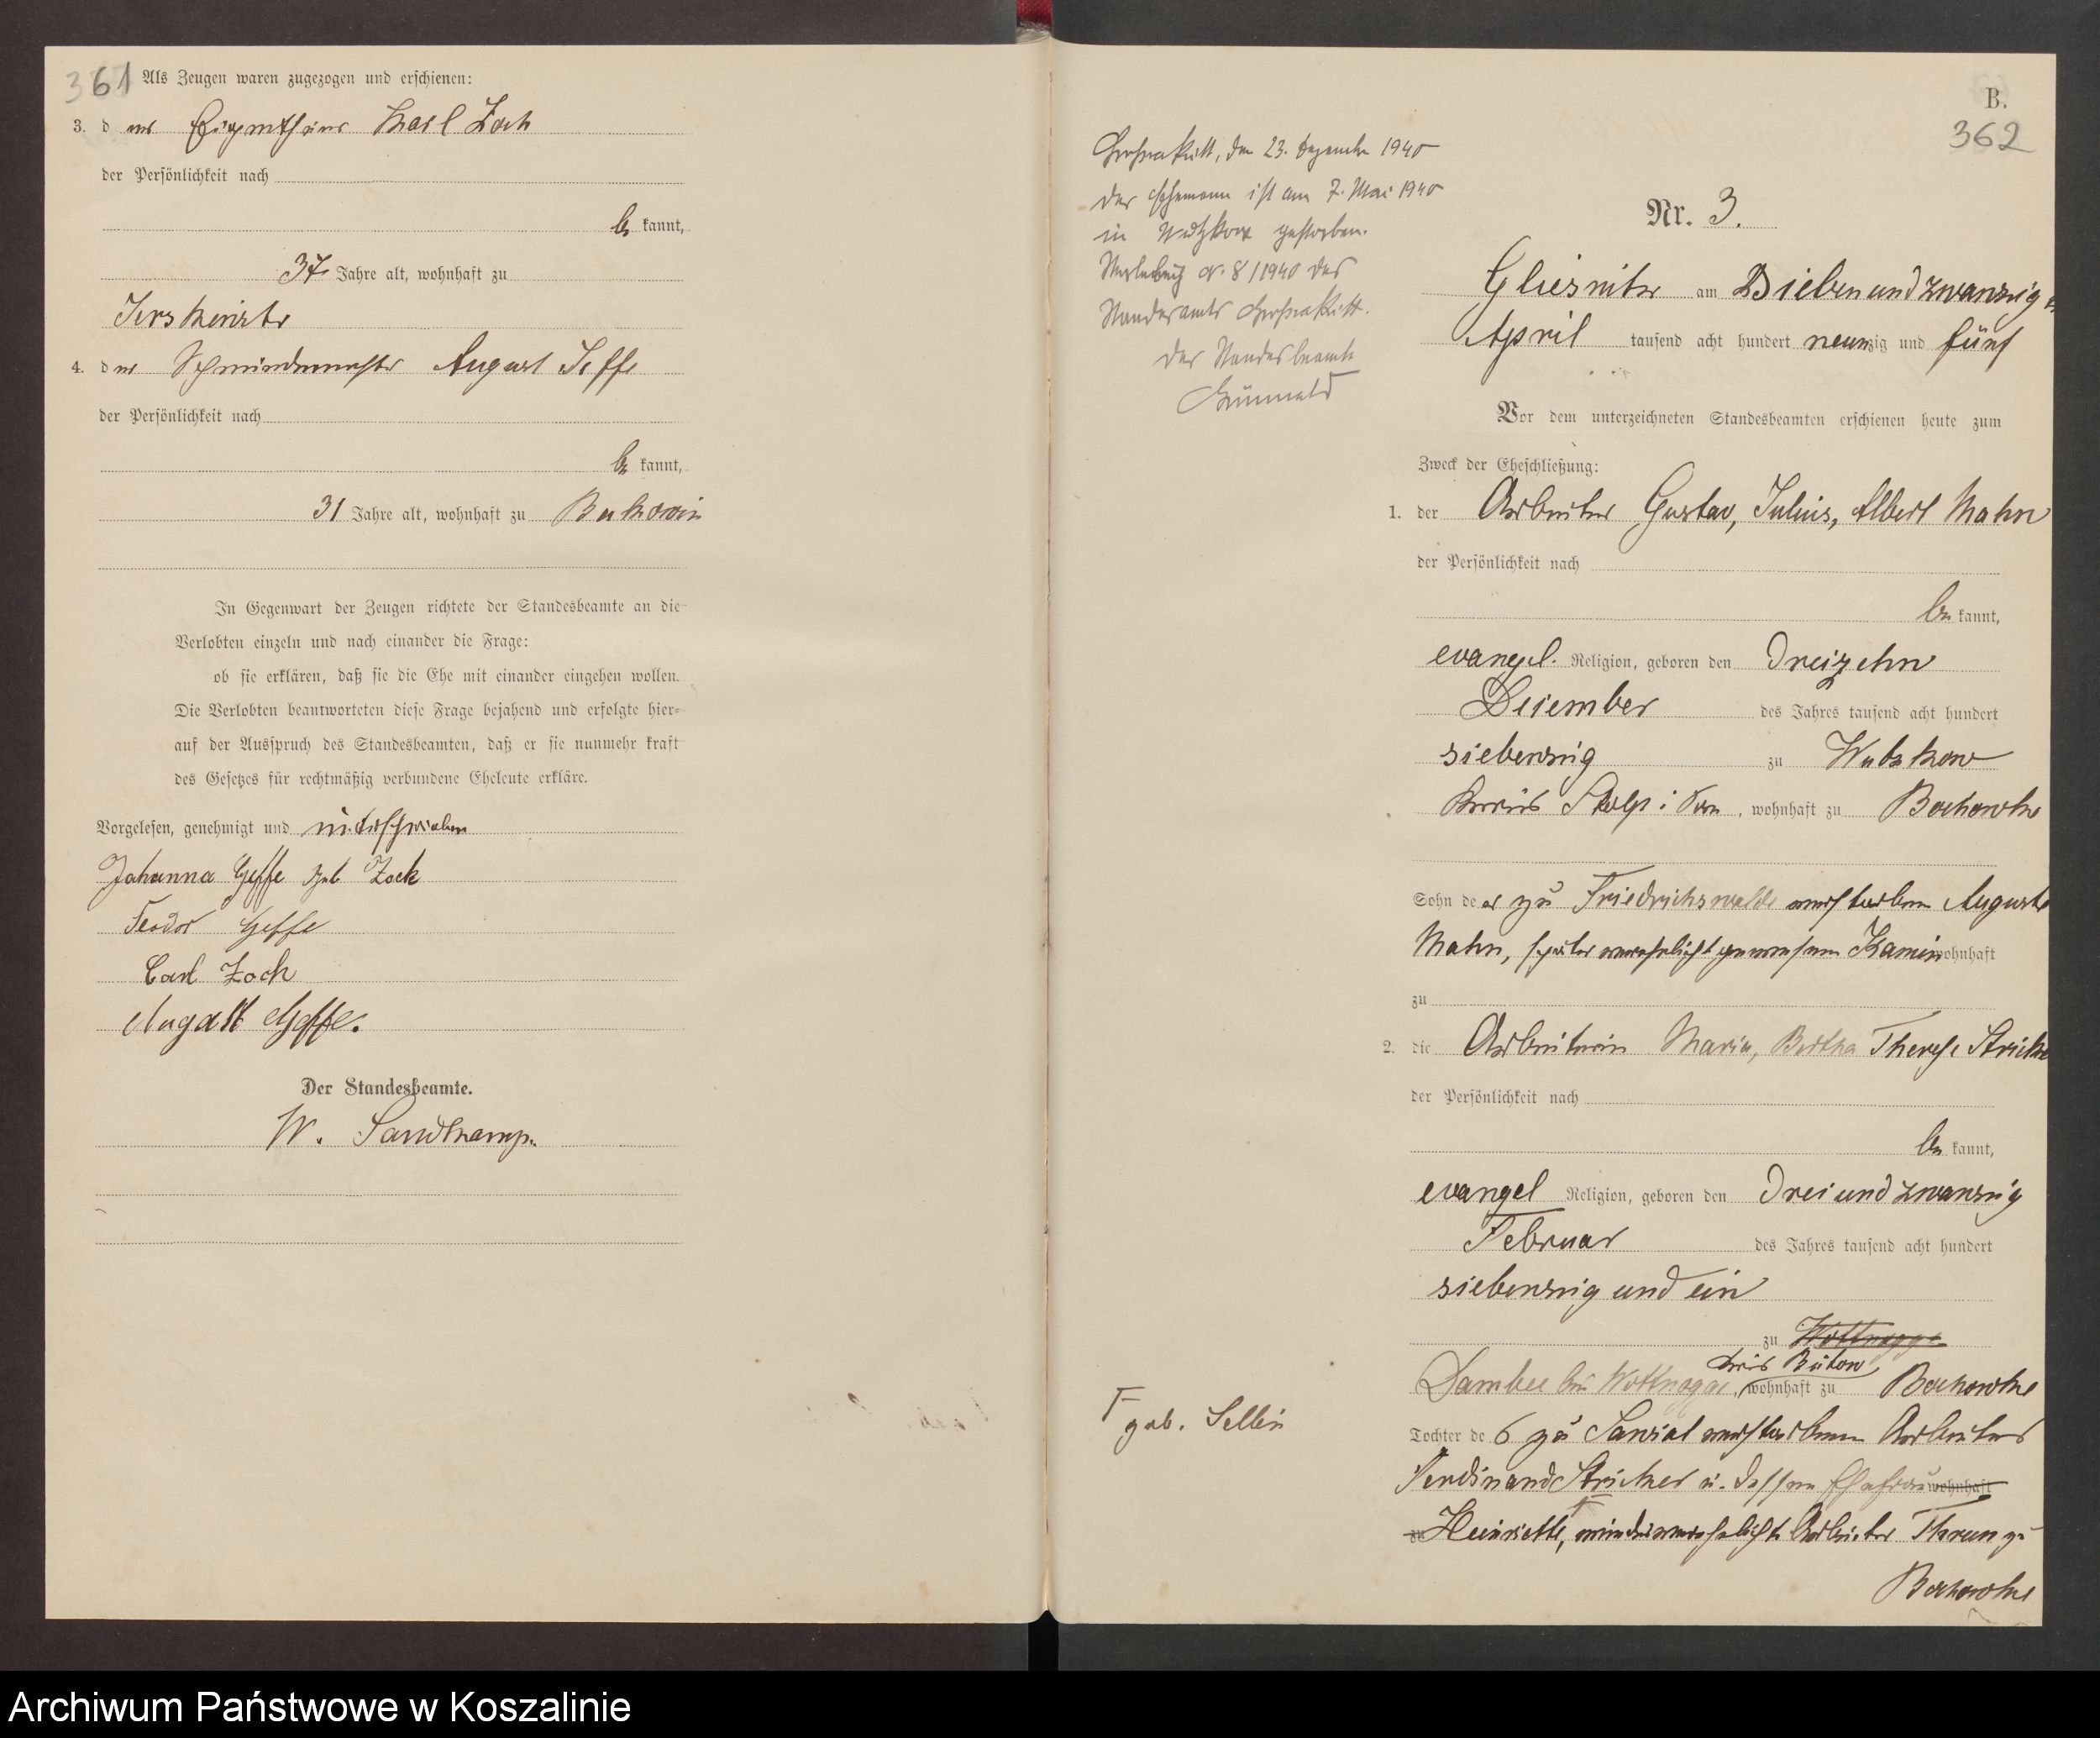 361 Als Zeugen waren zugezogen und erschienen:
3. d er Eigenthümer Karl Zoch
der Persönlichkeit nach
be kannt,
37 Jahre alt, wohnhaft zu
4. d er Schmiedemeister August Jeffe
der Persönlichkeit nach
be kannt,
31 Jahre alt, wohnhaft zu Bukowin
In Gegenwart der Zeugen richtete der Standesbeamte an die
Verlobten einzeln und nach einander die Frage:
ob sie erklären, daß sie die Ehe mit einander eingehen wollen.
Die Verlobten beantworteten diese Frage bejahend und erfolgte hier-
auf der Ausspruch des Standesbeamten, daß er sie nunmehr kraft
des Gesetzes für rechtmäßig verbundene Eheleute erkläre.
Vorgelesen, genehmigt und unterschrieben
Johanna Geffe geb Zock
Teodor Geffe
Carl Zoch
August Geffe.
Der Standesbeamte.
W. Sandkamp.
B.
362
den 23. Dezember 1940
Der Ehemann ist am 7. Mai 1940
in Wutzkow gestorben.
Nr. 8/1940 des
Standesamts
Der Standesbeamte
Nr. 3.
Gliesnitz am Sieben und zwanzigsten
April tausend acht hundert neunzig und fünf
Vor dem unterzeichneten Standesbeamten erschienen heute zum
Zweck der Eheschließung:
1. der Arbeiter Gustav, Julius, Albert Mahn
der Persönlichkeit nach
be kannt,
evangel. Religion, geboren den dreizehn
Dezember des Jahres tausend acht hundert
siebenzig zu Wutzkow
Kreis Stolp i Pom, wohnhaft zu Bochowke
Sohn de er zu Friedrichswalde verstorbenen Auguste
Mahn, später verehelicht gewesenen Kamin wohnhaft
zu
2. die Arbeiterin Maria, Bertha Therese Stricker
der Persönlichkeit nach
be kannt,
evangel Religion, geboren den drei und zwanzig
Februar des Jahres tausend acht hundert
siebenzig und ein
zu Wottnogge
Kreis Bütow
Dambee bei Wottnogge, wohnhaft zu Bochowke
Tochter de s zu verstorbenen Arbeiters
Ferdinand Stricker u. dessen Ehefrau wohnhaft
zu Henriette, wiederverehelichte Arbeiter Thrun zu
Bochowke
geb. Sellin
Archiwum Państwowe w Koszalinie